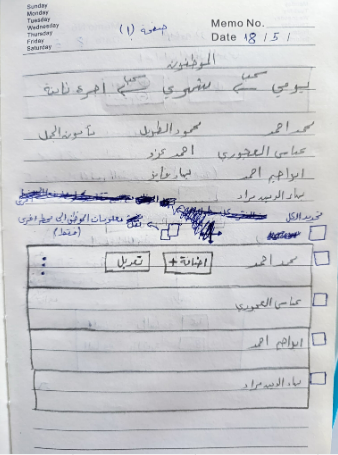 Sunday
Monday
Tuesday
Wednesday
Thursday
Friday
Saturday
صفحة (١)
Memo No.
Date 18 / 5 /
الموظفون
يومي سحب شهري سحب اجرة ثابتة
محمد احمد محمود الطويل مأمون الجمل
عباس العجوري احمد عزو
ابراهيم احمد
بهاء الدين مراد
تحديد الكل
نقل معلومات الموظف الى محطة اخرى
(فقط)
محمد احمد اضافة + تعديل
عباس العجوري
ابراهيم احمد
بهاء الدين مراد